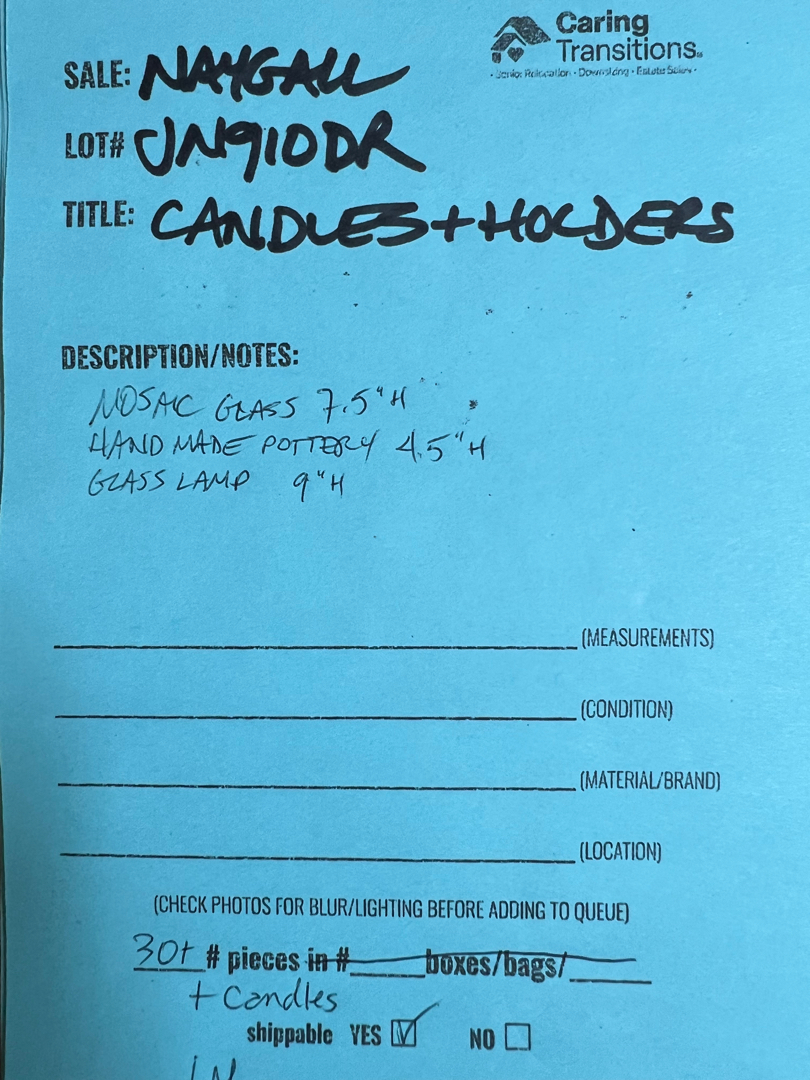 Caring
Transitions
• Senior Relocation • Downsizing • Estate Sales •
SALE: NAYGALL
LOT# JN910DR
TITLE: CANDLES + HOLDERS
DESCRIPTION/NOTES:
MOSAIC GLASS 7.5"H
HANDMADE POTTERY 4.5"H
GLASS LAMP 9"H
(MEASUREMENTS)
(CONDITION)
(MATERIAL/BRAND)
(LOCATION)
(CHECK PHOTOS FOR BLUR/LIGHTING BEFORE ADDING TO QUEUE)
30+ # pieces in #______boxes/bags/______
+ Candles
shippable YES ☑ NO ☐